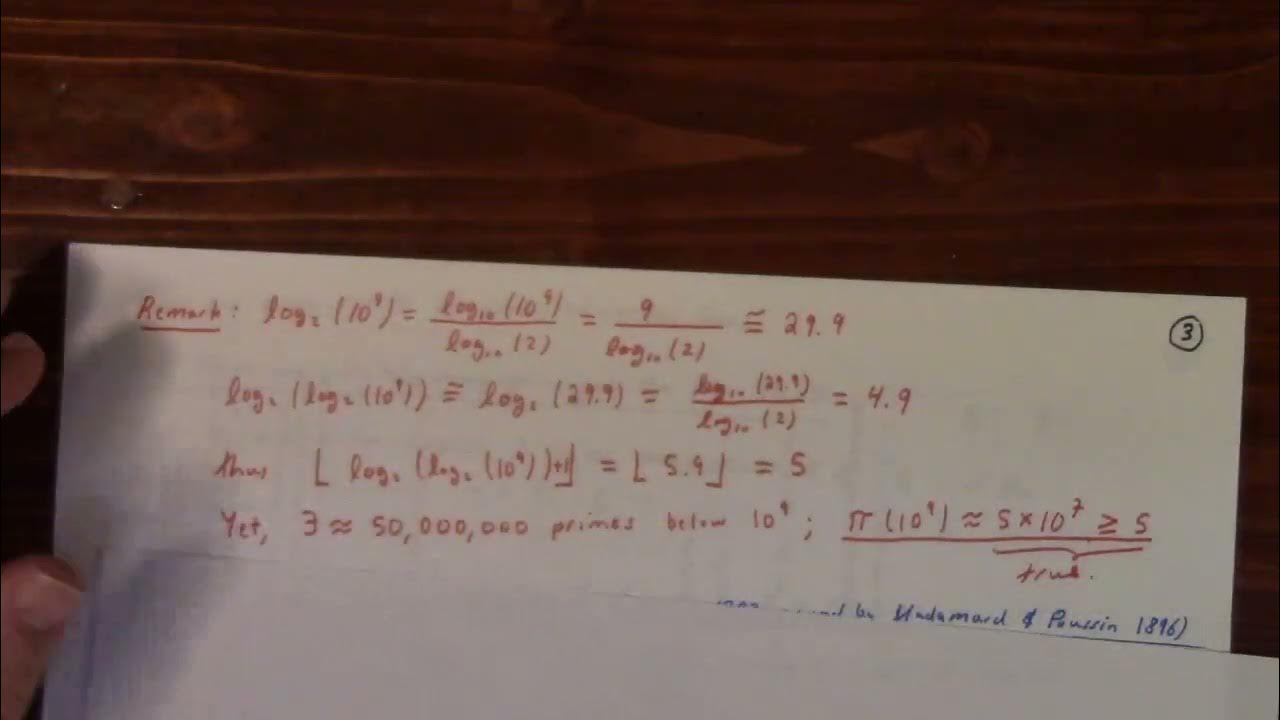 Remark: log₂(10⁹) = log₁₀(10⁹)/log₁₀(2) = 9/log₁₀(2) ≅ 29.9
③
log₂(log₂(10⁹)) ≅ log₂(29.9) = log₁₀(29.9)/log₁₀(2) = 4.9
thus ⌊log₂(log₂(10⁹))+1⌋ = ⌊5.9⌋ = 5
Yet, ∃ ≈ 50,000,000 primes below 10⁹; π(10⁹) ≈ 5×10⁷ ≥ 5
true.
by Hadamard & Poussin 1896)